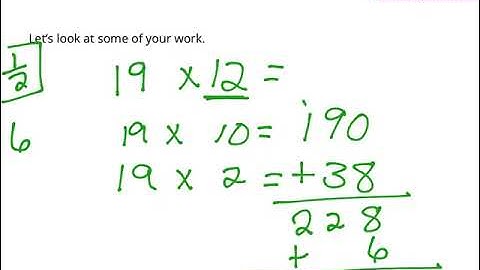 Let's look at some of your work.
1/2
19 x 12 =
6
19 x 10 = 190
19 x 2 = +38
228
+ 6